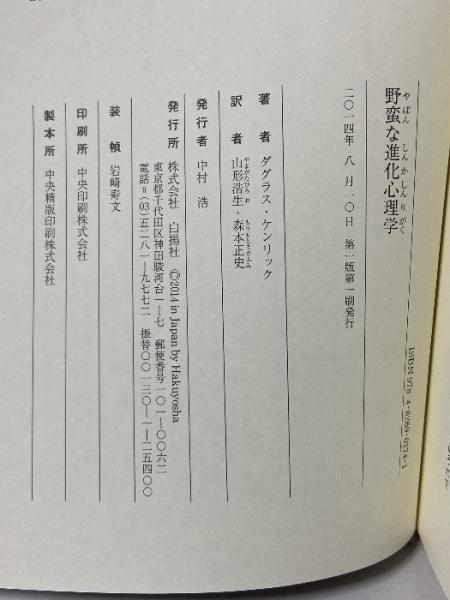 野蛮な進化心理学
やばん しんかしんりがく
二〇一四年 八 月一〇日 第一版第一刷発行
著 者 ダグラス・ケンリック
訳 者 山形浩生・森本正史
やまがたひろお もりもとまさふみ
発行者 中村 浩
発行所 株式会社 白揚社 ©2014 in Japan by Hakuyosha
東京都千代田区神田駿河台一―七 郵便番号一〇一―〇〇六二
電話＝(03)五二八一―九七七二 振替〇〇一三〇―一―二五四〇〇
装 幀 岩崎寿文
印刷所 中央印刷株式会社
製本所 中央精版印刷株式会社
ISBN 978 4-8269-0174-1